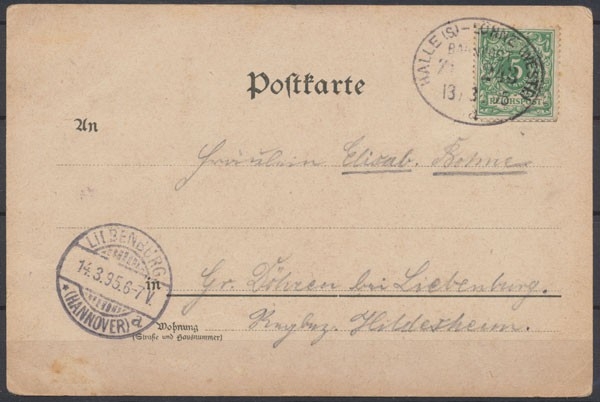 HALLE (S) - LÖHNE (WESTF)
13/3
a
5
REICHSPOST
Postkarte
An
Fräulein Elisab. Bohme
LIEBENBURG
14.3.95.6-7V.
*(HANNOVER) a
in
Gr. Döhren bei Liebenburg.
Regbez. Hildesheim.
Wohnung
(Straße und Hausnummer)